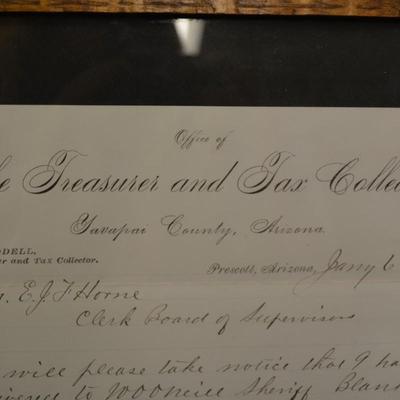 Office of
he Treasurer and Tax Collec
Yavapai County, Arizona.
DELL,
er and Tax Collector.
Prescott, Arizona, Jany 6
E.J.F Horne
Clerk Board of Supervisors
will please take notice that I ha
to W.O.O'Neill Sheriff Blank